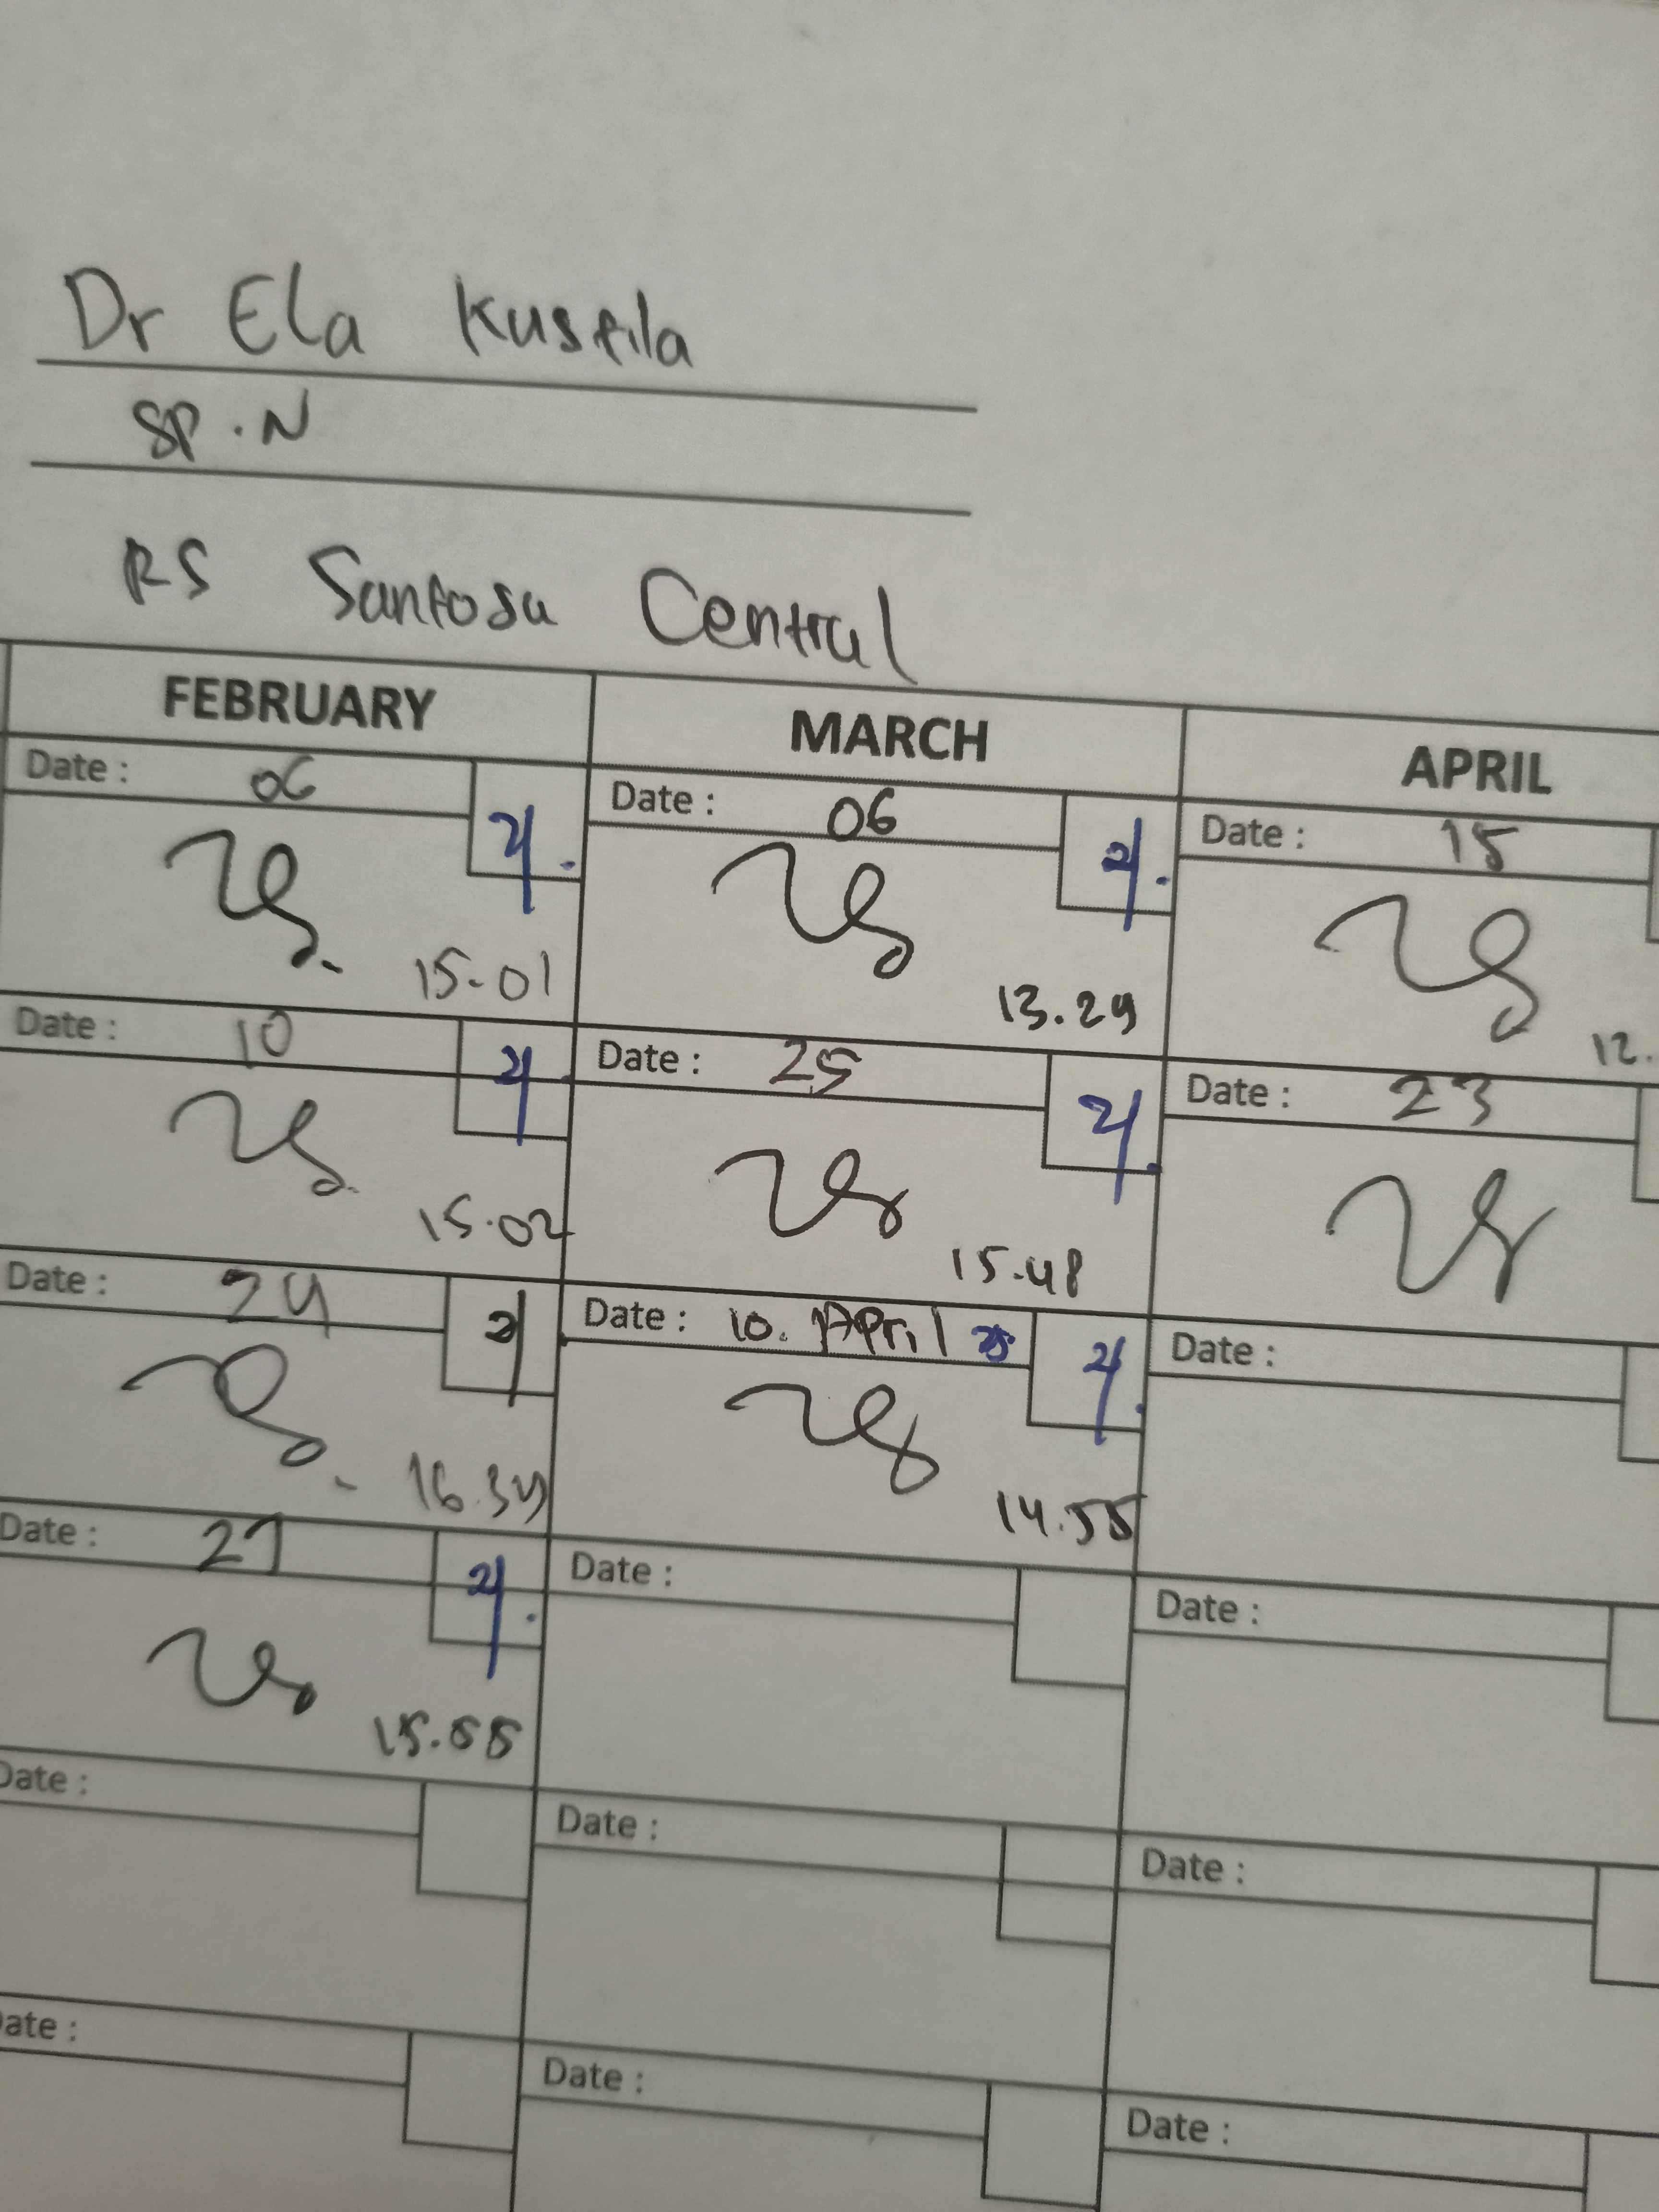 Dr Ela Kustila
SP.N
RS Santosa Central
FEBRUARY
MARCH
APRIL
Date : 06
Date : 06
Date : 15
15-01
13.29
12.
Date : 10
Date : 25
Date : 23
15.02
15.48
Date : 24
Date : 10. April 25
Date :
16.34
14.55
Date : 27
Date :
Date :
15.55
Date :
Date :
Date :
Date :
Date :
Date :